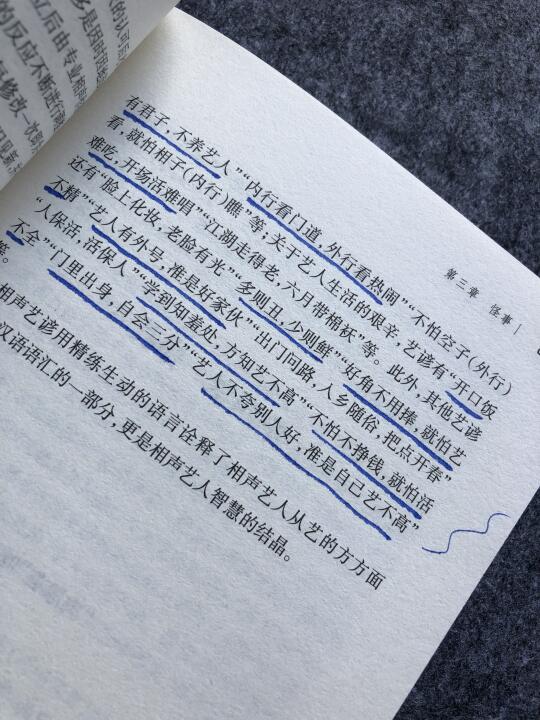 的反应不断进行
修改一次
第三章 怪事｜
有君子，不养艺人”“内行看门道，外行看热闹”“不怕空子(外行)
看，就怕相子(内行)瞧”等，关于艺人生活的艰辛，艺谚有“开口饭
难吃，开场活难唱”“江湖走得老，六月带棉袄”等。此外，其他艺谚
还有“脸上化妆，老脸有光”“多则丑，少则鲜”“好角不用捧，就怕艺
不精”“艺人有外号，准是好家伙”“出门问路，入乡随俗，把点开春”
“人保活，活保人”“学到知羞处，方知艺不高”“不怕不挣钱，就怕活
不全”“门里出身，自会三分”“艺人不夸别人好，准是自己艺不高”
等。
相声艺谚用精练生动的语言诠释了相声艺人从艺的方方面
汉语语汇的一部分，更是相声艺人智慧的结晶。